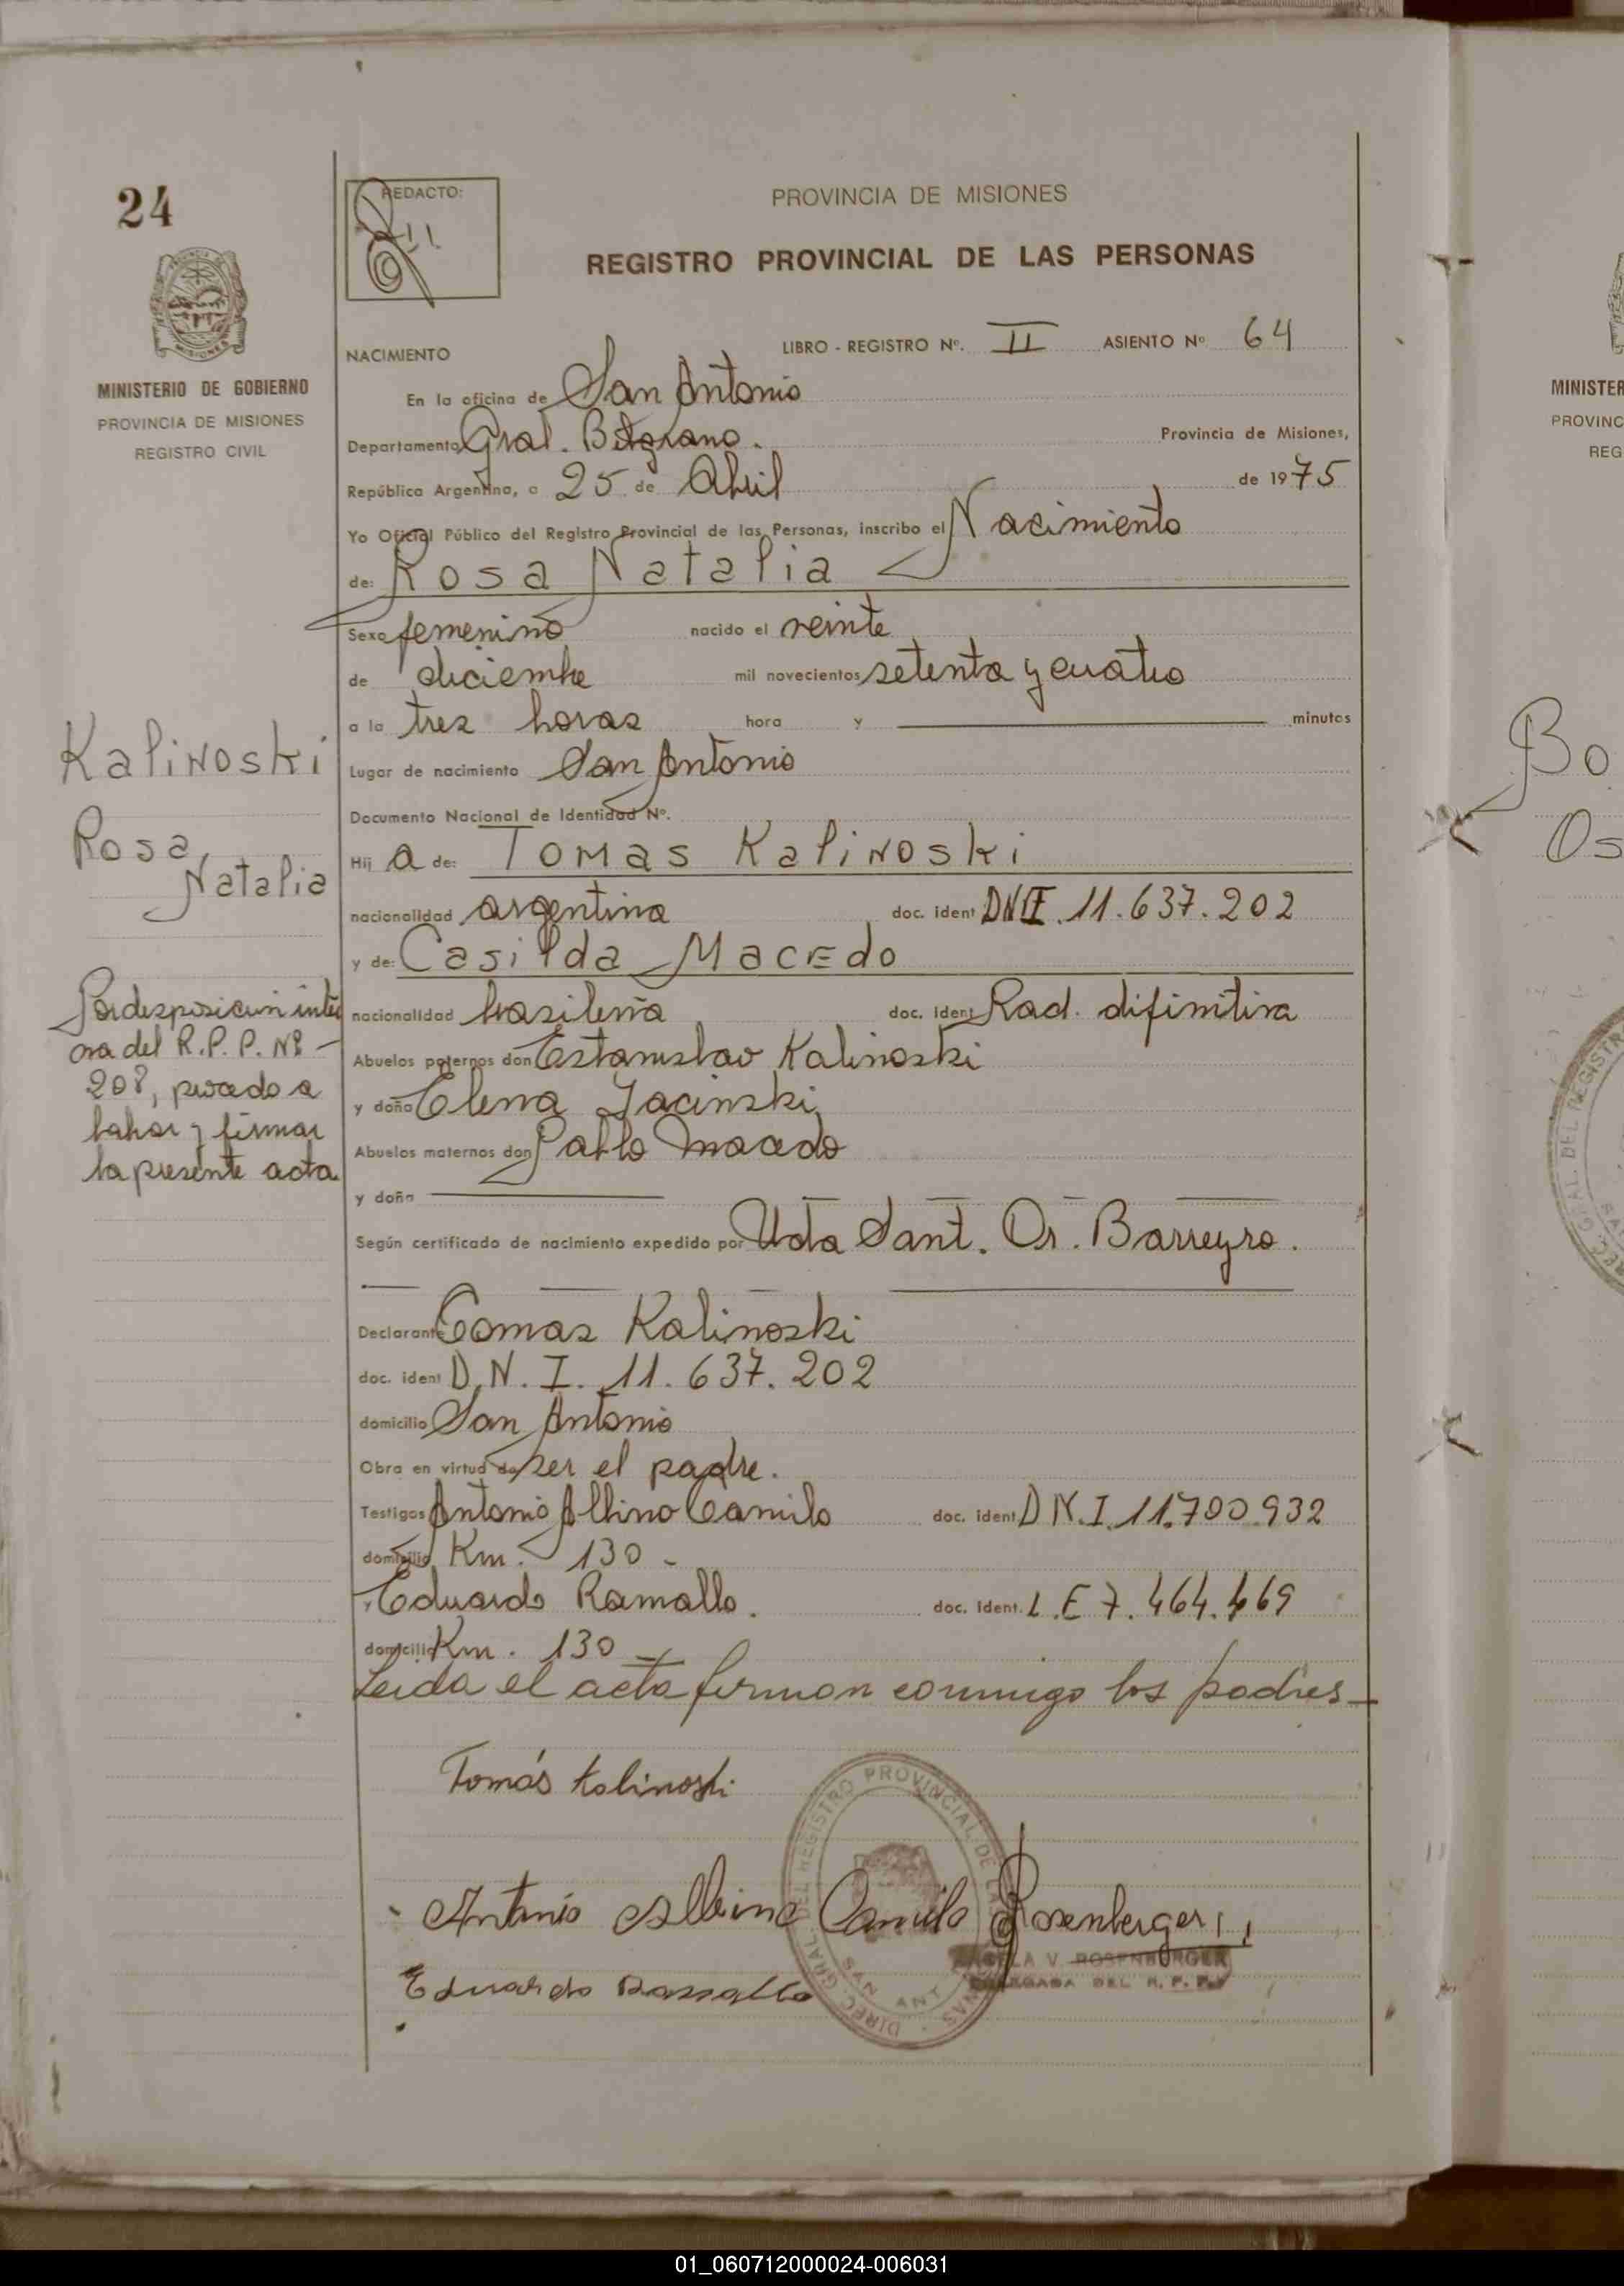 24
REDACTO:
PROVINCIA DE MISIONES
REGISTRO PROVINCIAL DE LAS PERSONAS
MINISTERIO DE GOBIERNO
PROVINCIA DE MISIONES
REGISTRO CIVIL
NACIMIENTO
LIBRO - REGISTRO Nº. II ASIENTO Nº 64
En la oficina de San Antonio
Departamento Gral. Belgrano. Provincia de Misiones,
República Argentina, a 25 de Abril de 1975
Yo Oficial Público del Registro Provincial de las Personas, inscribo el Nacimiento
de: Rosa Natalia
Sexo femenino nacido el veinte
de diciembre mil novecientos setenta y cuatro
a la tres horas hora y minutos
Lugar de nacimiento San Antonio
Documento Nacional de Identidad Nº.
Hij a de: Tomas Kalinoski
nacionalidad argentina doc. ident DNI. 11.637.202
y de: Casilda Macedo
nacionalidad brasileña doc. ident Rad. difinitiva
Abuelos paternos don Estanislao Kalinoski
y doña Elena Jacinski
Abuelos maternos don Pablo Macedo
y doña
Según certificado de nacimiento expedido por Uda Sant. Or. Barreyro.
Declarante Tomas Kalinoski
doc. ident D.N.I. 11.637.202
domicilio San Antonio
Obra en virtud de ser el padre.
Testigos Antonio Albino Camilo doc. ident D N.I. 11.700.932
domicilio Km. 130 -
y Eduardo Ramallo. doc. ident. L.E 7.464.469
domicilio Km. 130
Leida el acta firman conmigo los padres
Tomás Kalinoski
Antonio Albino Camilo Rosenberger
Eduardo Ramallo
V. ROSENBERGER
DEL R. P. P.
DIREC. GRAL. DEL REGISTRO PROVINCIAL DE LAS PERSONAS
SAN ANT
Kalinoski
Rosa
Natalia
Por desposicion inter
na del R.P.P. Nº -
208, procedo a
labrar y firmar
la presente acta
MINISTER
PROVINC
REG
Bo
Os
01_060712000024-006031